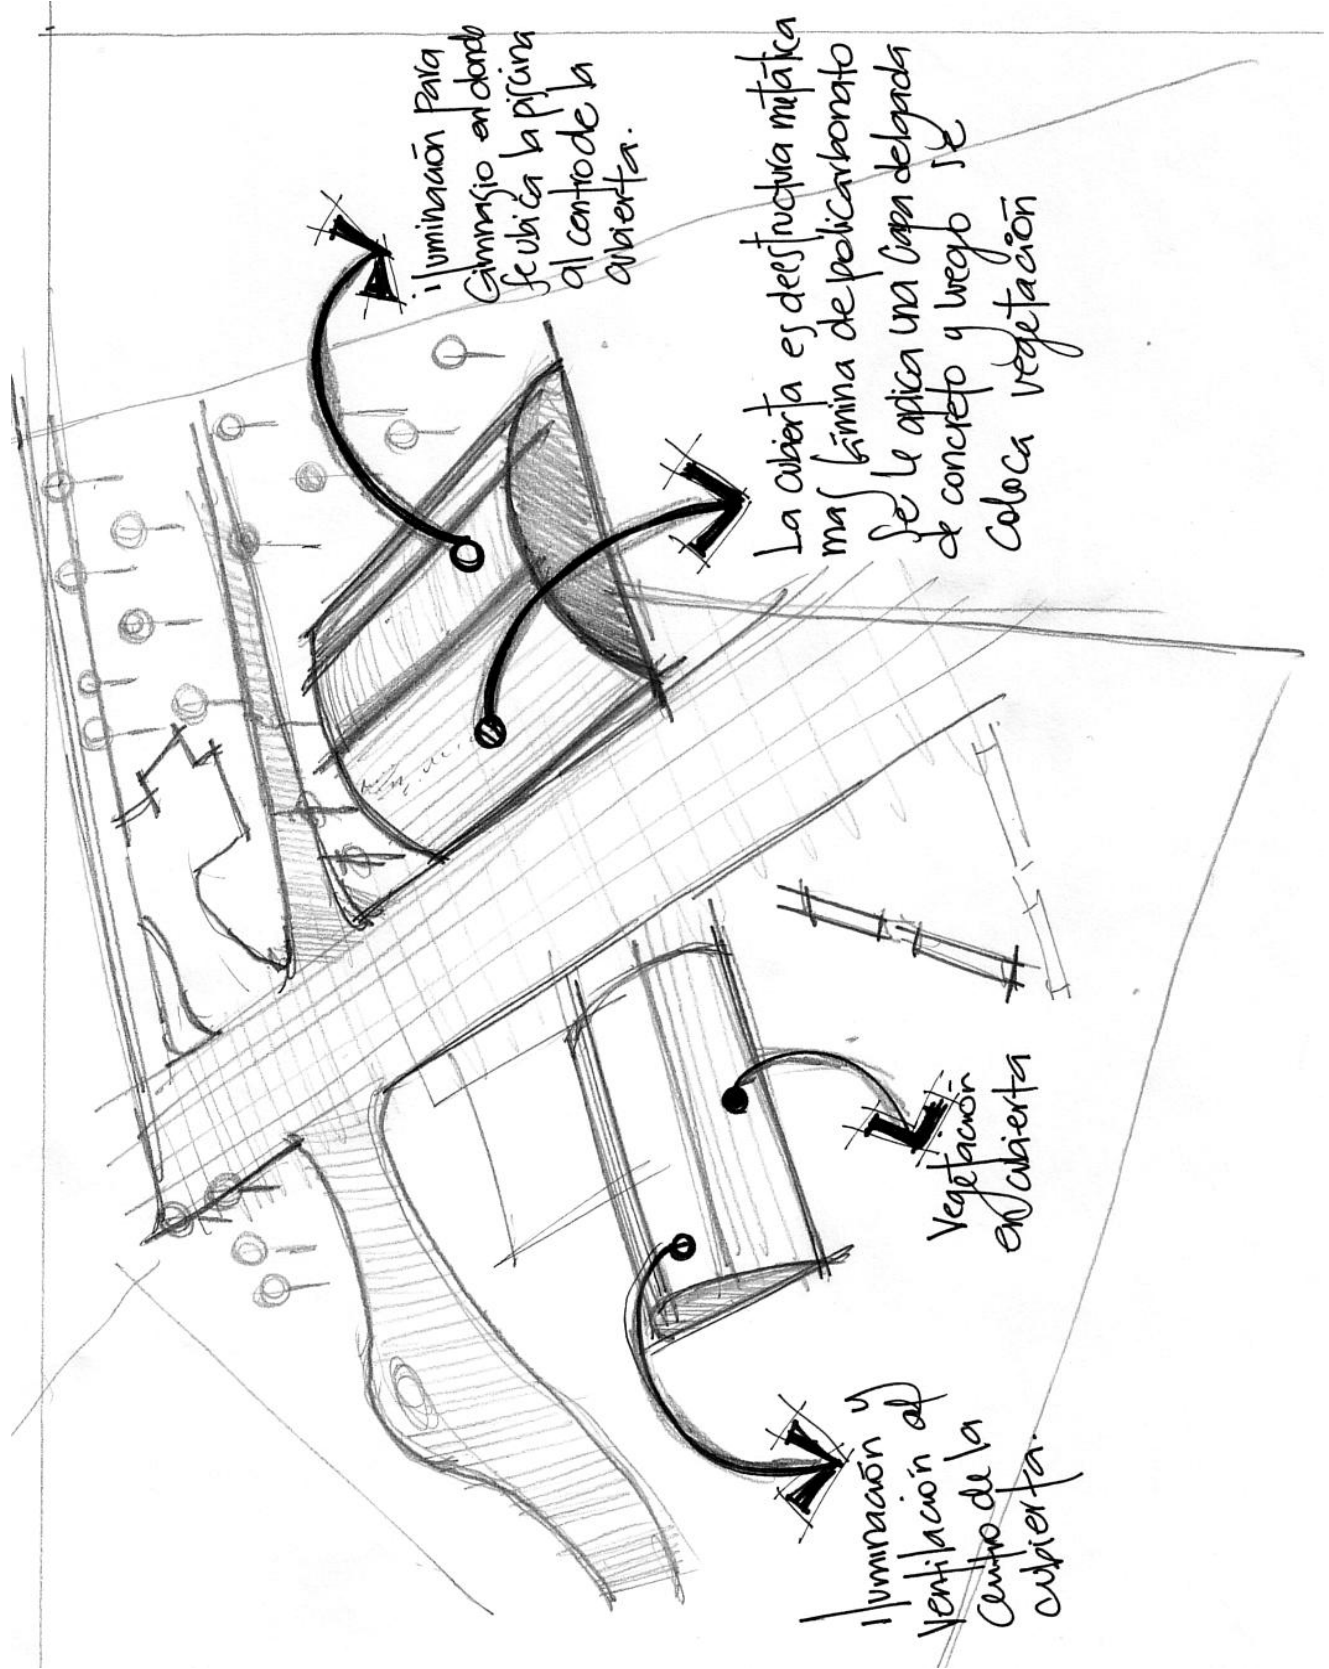 iluminación para
Gimnasio en donde
se ubica la piscina
al centro de la
cubierta.
La cubierta es de estructura metálica
mas lámina de policarbonato
se le aplica una capa delgada
de concreto y luego se
coloca vegetación
Vegetación
en cubierta
Iluminación y
ventilación al
centro de la
cubierta.